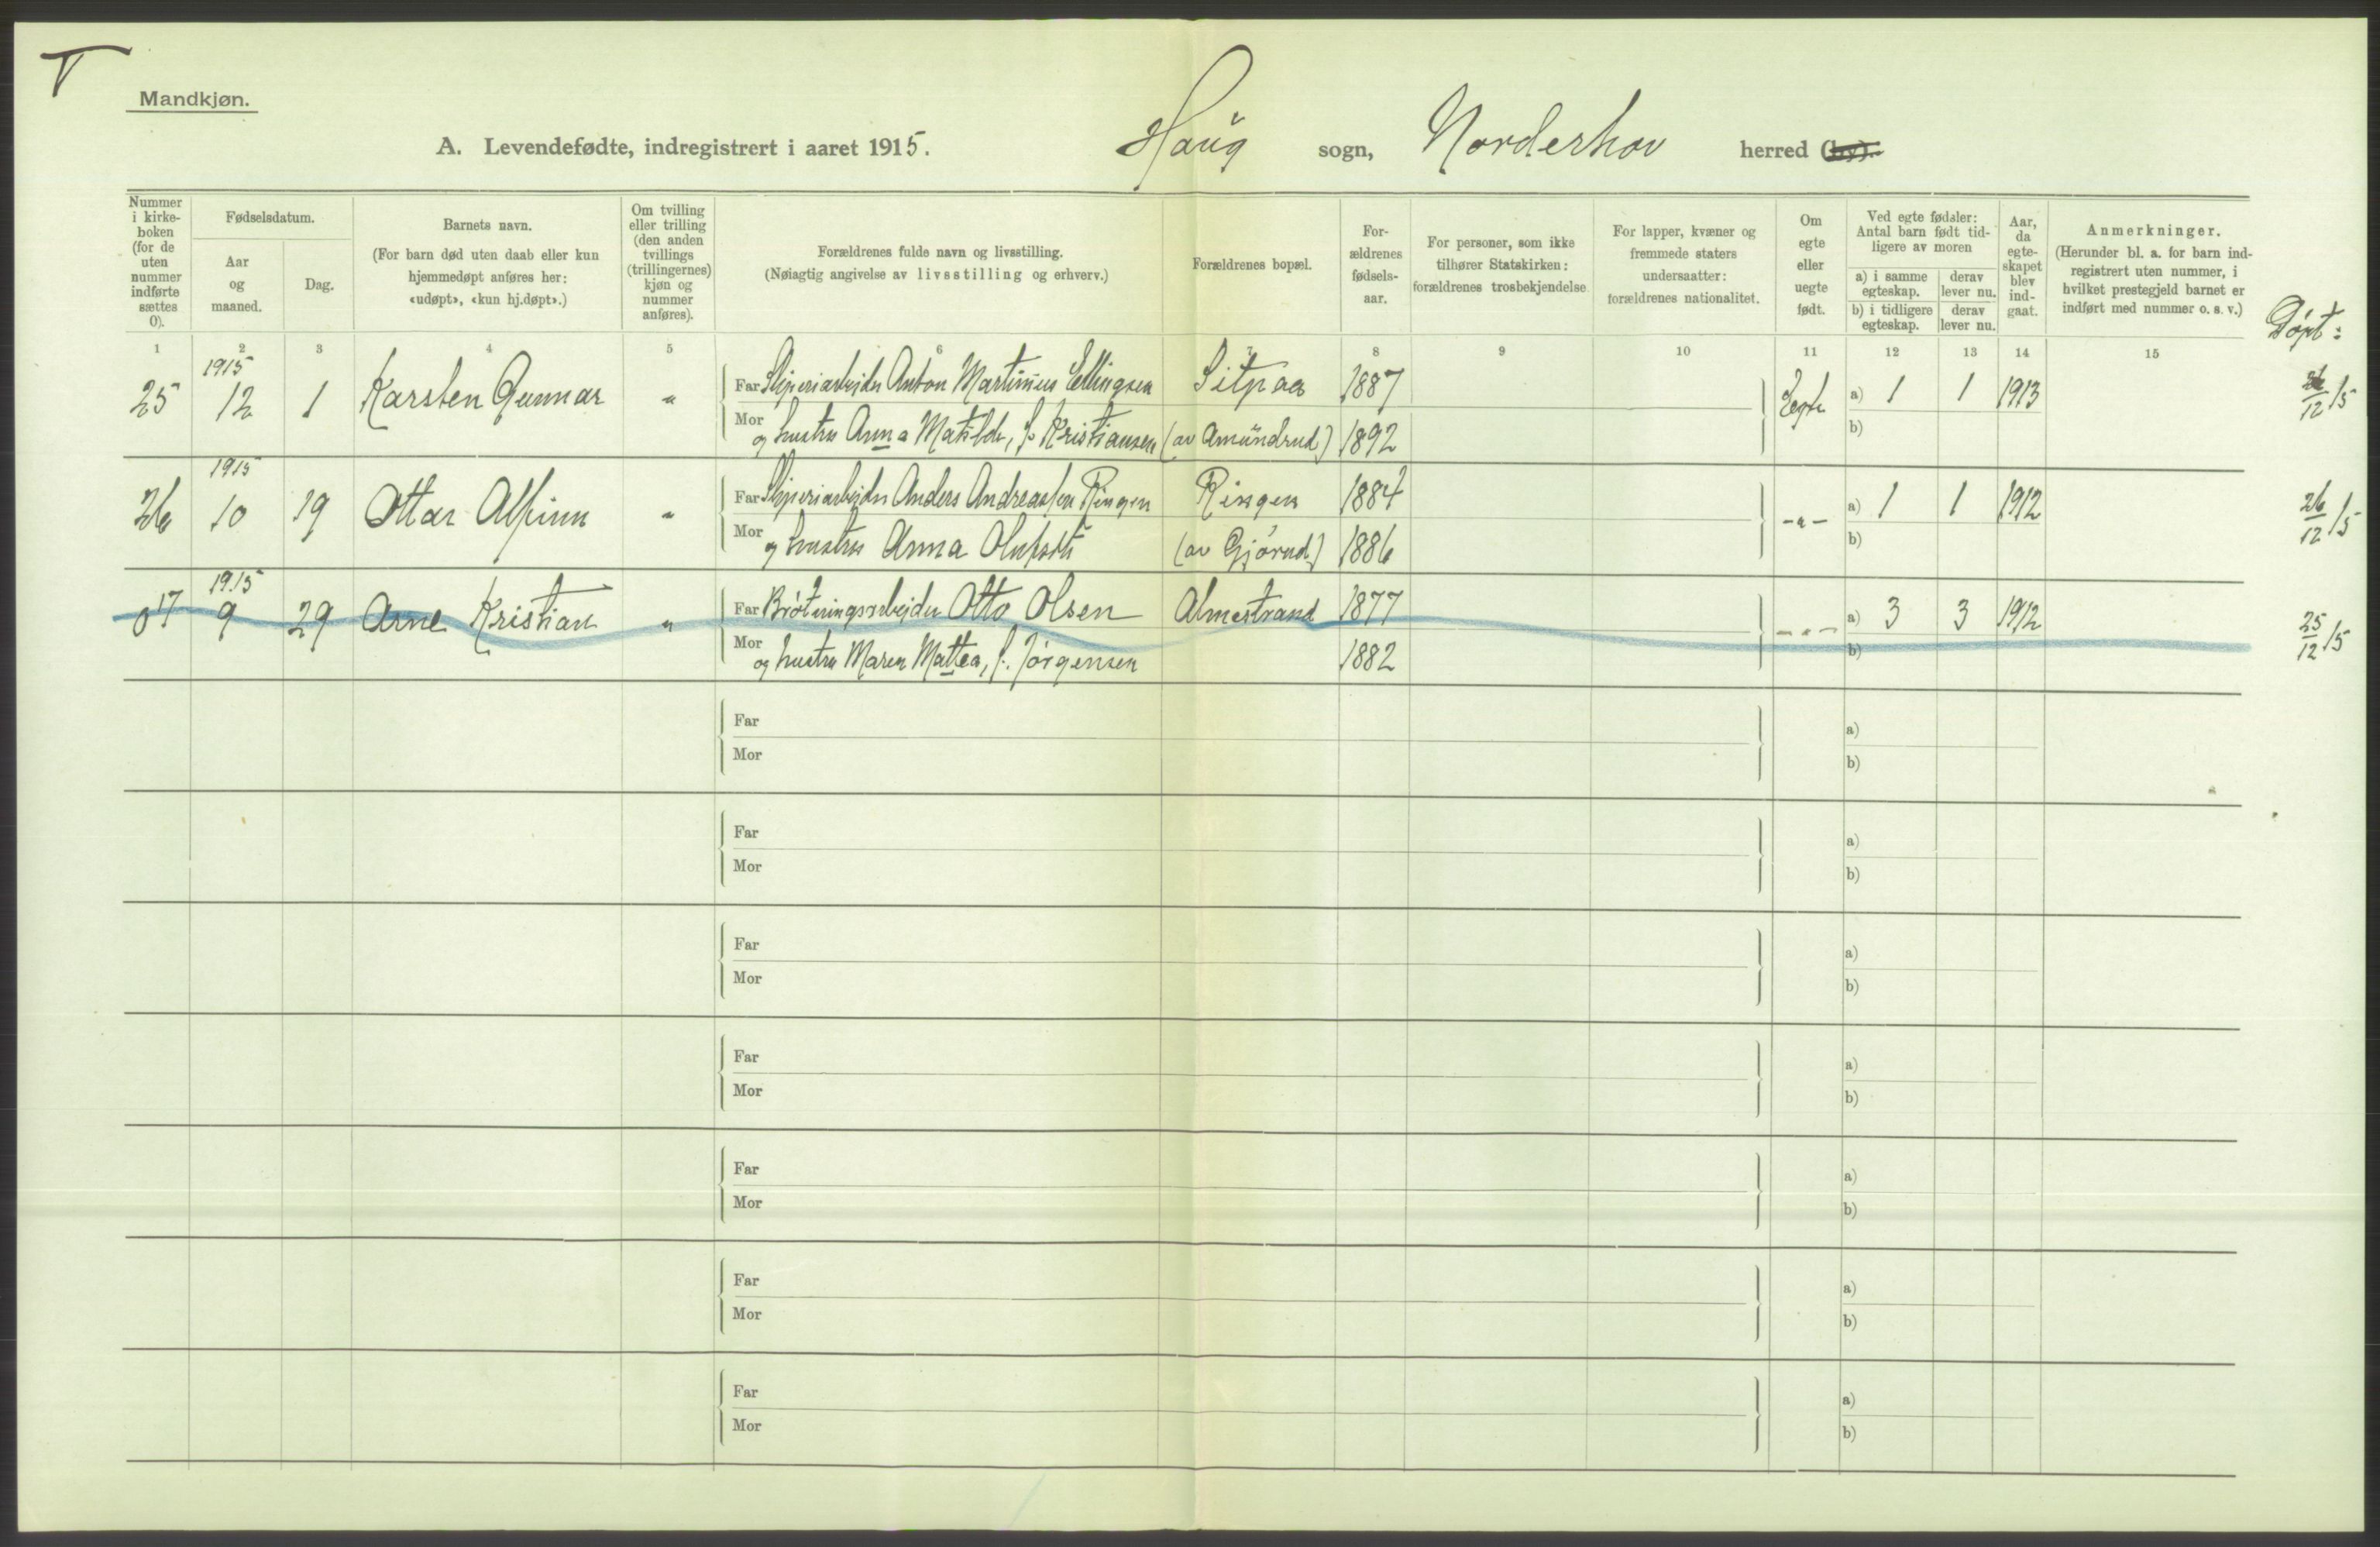 Mandkjøn.
A. Levendefødte, indregistrert i aaret 1915. Haug sogn, Norderhov herred (by).
Nummer i kirke- boken (for de uten nummer indførte sættes 0).
Fødselsdatum.
Aar og maaned.
Dag.
Barnets navn.
(For barn død uten daab eller kun hjemmedøpt anføres her: «udøpt», «kun hj.døpt».)
Om tvilling eller trilling (den anden tvillings (trillingernes) kjøn og nummer anføres).
Forældrenes fulde navn og livsstilling.
(Nøiagtig angivelse av livsstilling og erhverv.)
Forældrenes bopæl.
For- ældrenes fødsels- aar.
For personer, som ikke tilhører Statskirken: forældrenes trosbekjendelse
For lapper, kvæner og fremmede staters undersaatter: forældrenes nationalitet.
Om egte eller uegte født.
Ved egte fødsler: Antal barn født tid- ligere av moren
a) i samme egteskap. derav lever nu.
b) i tidligere egteskap. derav lever nu.
Aar, da egte- skapet blev ind- gaat.
Anmerkninger.
(Herunder bl. a. for barn ind- registrert uten nummer, i hvilket prestegjeld barnet er indført med nummer o. s. v.)
Döpt:
1 2 3 4 5 6 7 8 9 10 11 12 13 14 15
1915
25 12 1 Karsten Gunnar " Far Sliperiarbejder Anton Martinius Ellingsen 1887 Egte a) 1 1 1913 26/12 15
Mor og hustru Anna Matilde, f. Kristiansen (av Amundrud) 1892 b)
1915
26 10 19 Ottar Alfinn " Far Sliperiarbejder Anders Andreassen Ringen Ringen 1884 -"- a) 1 1 1912 26/12 15
Mor og hustru Anna (av Gjörud) 1886 b)
1915
017 9 29 Arne Kristian " Far Brötningsarbejder Otto Olsen Almestrand 1877 -"- a) 3 3 1912 25/12 15
Mor og hustru Maren Mattea, f. Jörgensen 1882 b)
Far a)
Mor b)
Far a)
Mor b)
Far a)
Mor b)
Far a)
Mor b)
Far a)
Mor b)
Far a)
Mor b)
Far a)
Mor b)